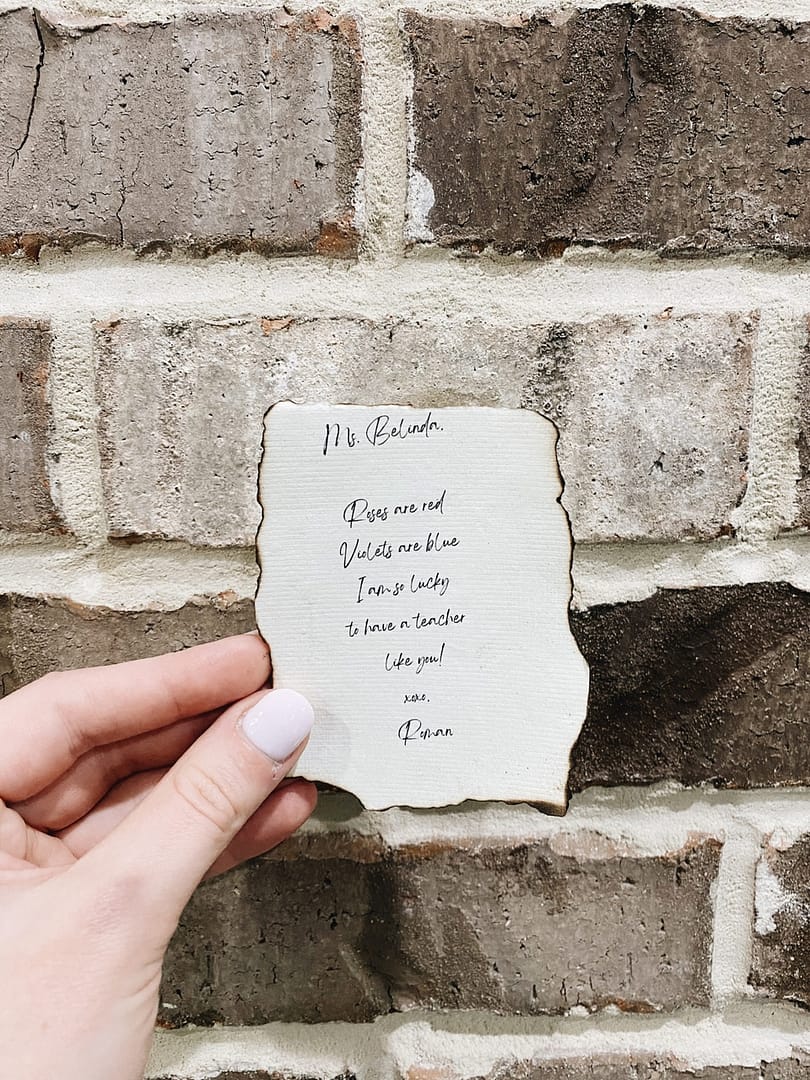 Ms. Belinda.
Roses are red
Violets are blue
I am so lucky
to have a teacher
like you!
xoxo.
Roman